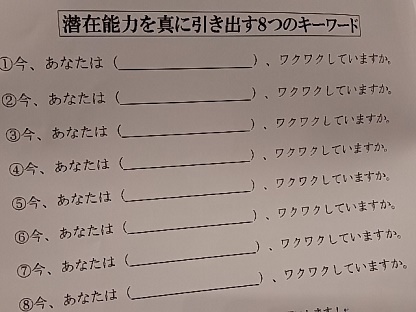 潜在能力を真に引き出す8つのキーワード
①今、あなたは（＿＿＿＿＿＿＿＿＿＿）、ワクワクしていますか。
②今、あなたは（＿＿＿＿＿＿＿＿＿＿）、ワクワクしていますか。
③今、あなたは（＿＿＿＿＿＿＿＿＿＿）、ワクワクしていますか。
④今、あなたは（＿＿＿＿＿＿＿＿＿＿）、ワクワクしていますか。
⑤今、あなたは（＿＿＿＿＿＿＿＿＿＿）、ワクワクしていますか。
⑥今、あなたは（＿＿＿＿＿＿＿＿＿＿）、ワクワクしていますか。
⑦今、あなたは（＿＿＿＿＿＿＿＿＿＿）、ワクワクしていますか。
⑧今、あなたは（＿＿＿＿＿＿＿＿＿＿）、ワクワクしていますか。